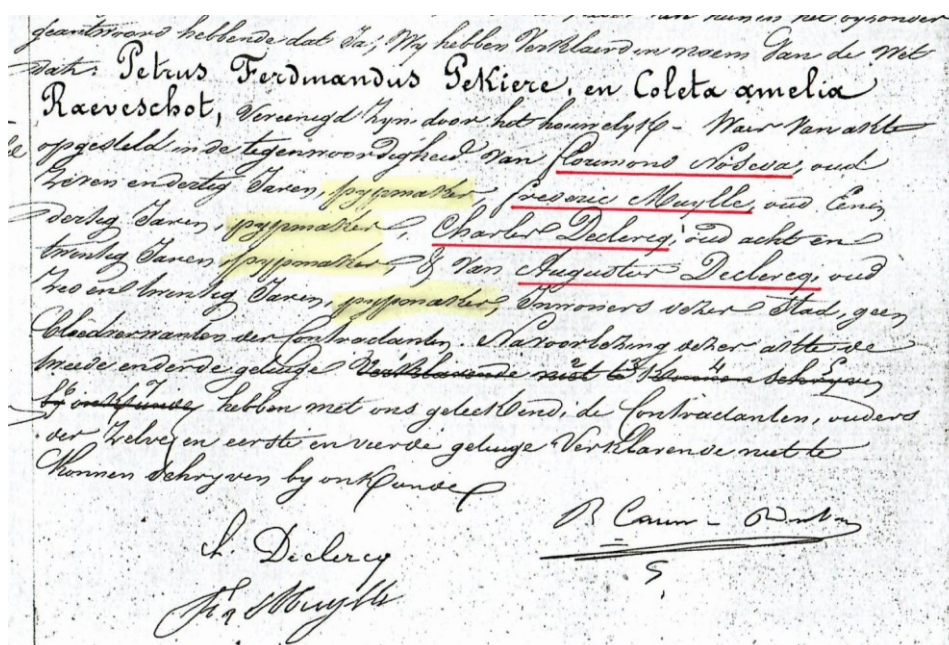 geantwoord hebbende dat Ja; Wy hebben Verklaerd in naem Van de Wet
dat: Petrus Ferdinandus Pekiere, en Coleta amelia
Raeveschot, Vereenigd Zyn door het houwelyk - Waer Van akte
opgesteld in de tegenwoordigheid Van Edemond Noseda, oud
Zeven en dertig Jaren, pypmaker, Frederic Muylle, oud Een en
dertig Jaren, pypmaker, Charles Declercq, oud acht en
twintig Jaren, pypmaker, & Van Augustus Declercq, oud
Zes en twintig Jaren, pypmaker, Inwoners dezer Stad, geen
bloedverwanten der Contractanten. Na voorlezing dezer akte de
tweede en derde getuige Verklarende niet te konnen schryven
by onkunde hebben met ons geteekend, de Contractanten, ouders
der Zelve, en eerste en vierde getuige Verklarende niet te
konnen schryven by onkunde
ch. Declercq
Muylle